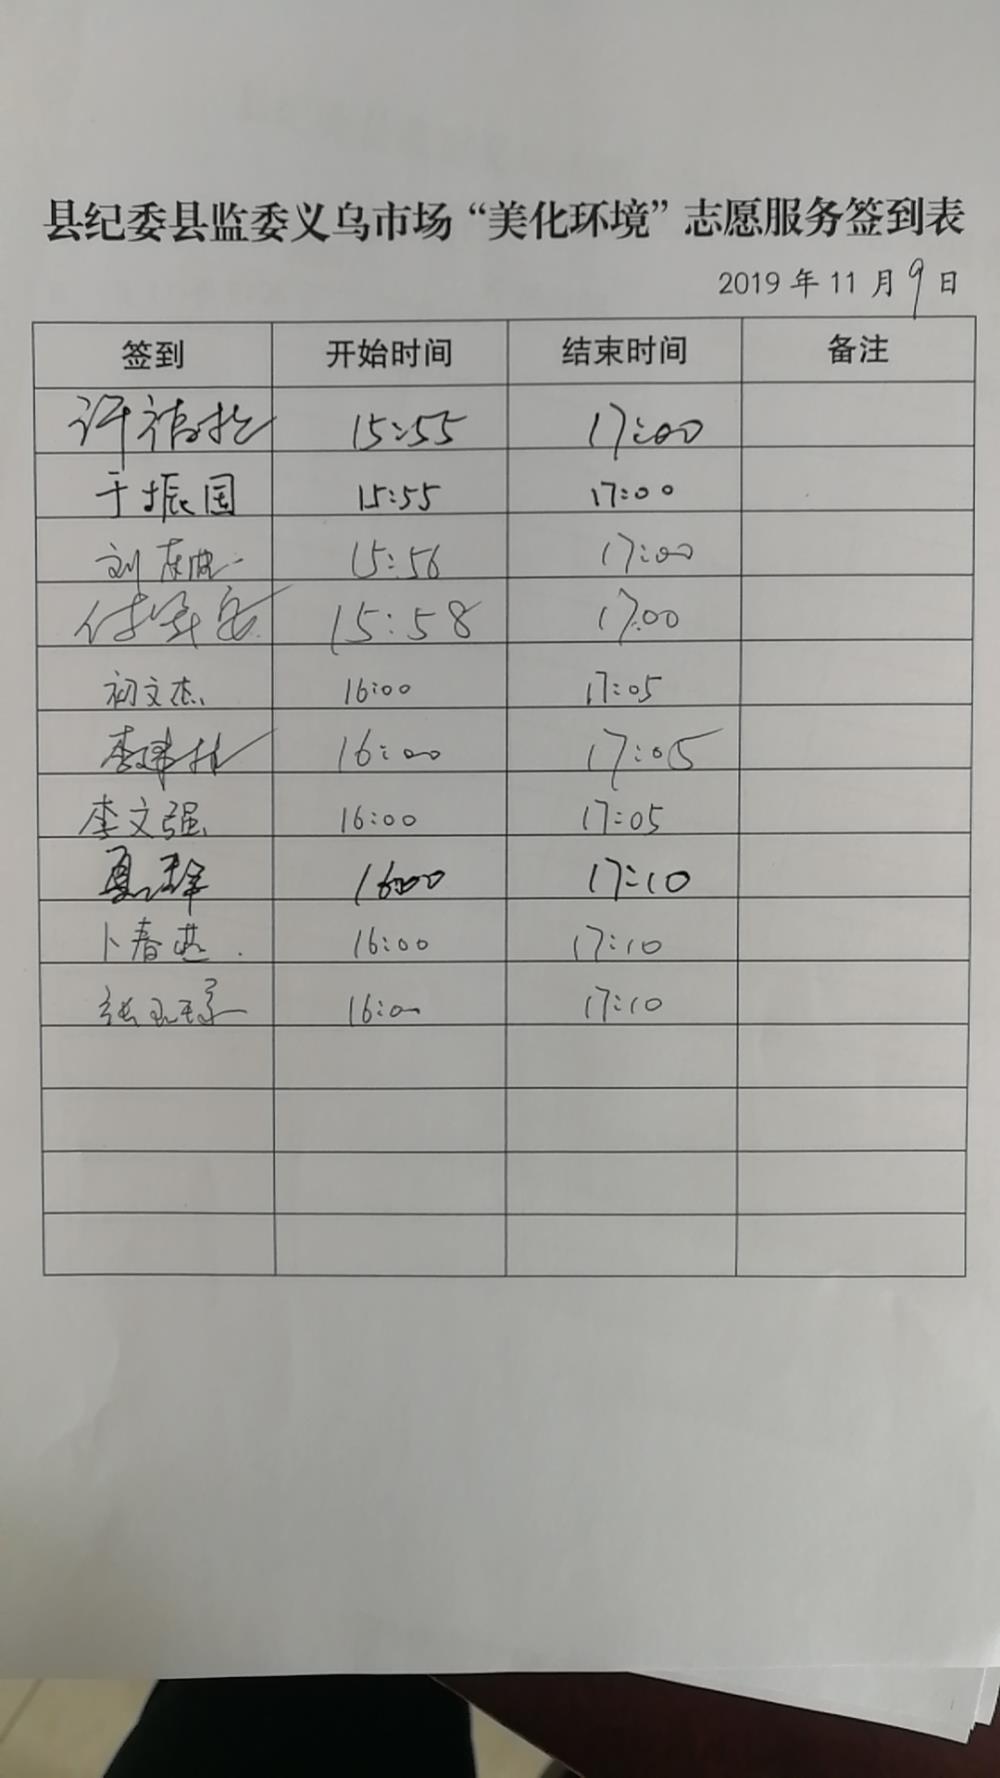 县纪委县监委义乌市场“美化环境”志愿服务签到表
2019 年 11 月 9 日
签到 开始时间 结束时间 备注
许 15:55 17:00
于振国 15:55 17:00
刘 15:56 17:00
付 15:58 17:00
初文杰 16:00 17:05
李 16:00 17:05
李文强 16:00 17:05
夏 16:00 17:10
卜春燕 16:00 17:10
张 16:00 17:10